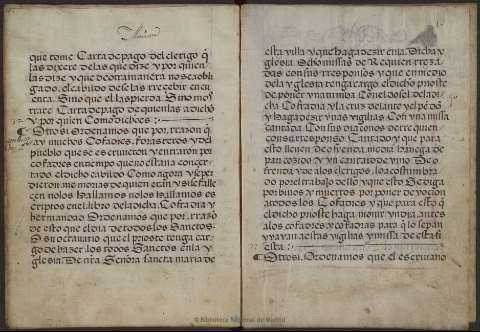 que tome Carta de pago del clerigo q̃
las dixere delas que dize y por quien
las dize y que de otra manera no sea obli
gado, el cabildo de se las rrecebir en cu
enta. Sino que el las pierda. Sino mos
trare Carta de pago de quien las a dicho
y por quien Como dicho es:
Otrosi. Ordenamos que por, rrazon q̃
ay muchos Cofrades, forasteros y del
pueblo que se escriuieron y entraron por
cofrades en tiempo que no estaua concer
tado, el dicho cabildo Como agora y se per
dieron memorias de quien eran y si se falle
cen no los hallamos no los hallamos es
criptos en el libro de la dicha, Cofradia y
hermandad Ordenamos que por, rrazõ
de esto que el dia de todos los Sanctos.
O su octauario que el prioste tenga car
go de hazer, los todos Sanctos en la y
glesia. De nr̃a Señora sancta maria de
esta villa y que haga dezir en la. Dicha y
glesia. Ocho missas De Requien rreza
das con sus rresponsos y que en medio
de la yglesia tenga cargo el dicho prioste
de poner vna tumba Con el dosel de la di
cha Cofradia y la cruz delante y el pẽdõ
y haga dezir vnas vigilias Cõ fi vna missa
cantada Con sus diaconos de rrequien
con su rresponso Cantado y que para
esto lleuen De ofrenda media hanega de
pan cozido y vn cantaro de vino De o
frenda y de a los clerigos, lo acostumbra
do por el trabajo dello y que este Se diga
por biuos y muertos por poner deuocion
a todos los, Cofrades y que para esto q̃
el dicho prioste haga monir vn dia, antes
a los cofrades y cofradas para q̃ lo sepan
y vayan a estas vigilias y missa de esta fi
esta:
Otrosi. Ordenamos que el escriuano
© Biblioteca Nacional de Madrid